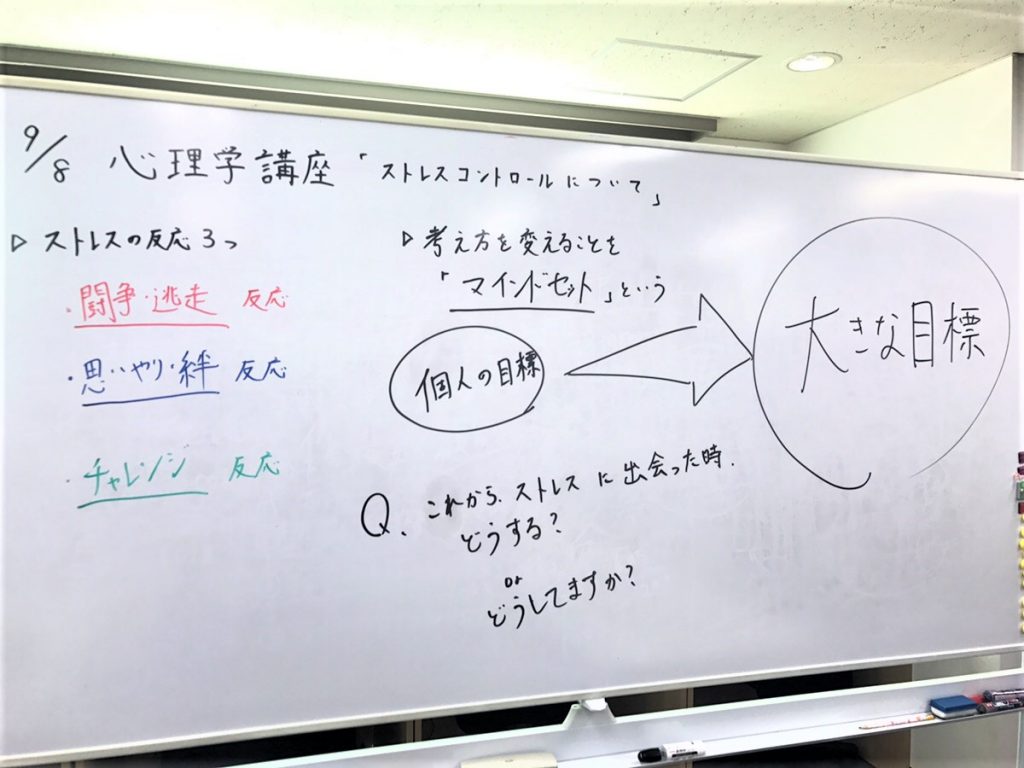 9/8 心理学講座「ストレスコントロールについて」
▷ ストレスの反応3つ
・闘争・逃走 反応
・思いやり・絆 反応
・チャレンジ 反応
▷ 考え方を変えることを
「マインドセット」という
個人の目標
大きな目標
Q. これから、ストレスに出会った時.
どうする?
or
どうしてますか?